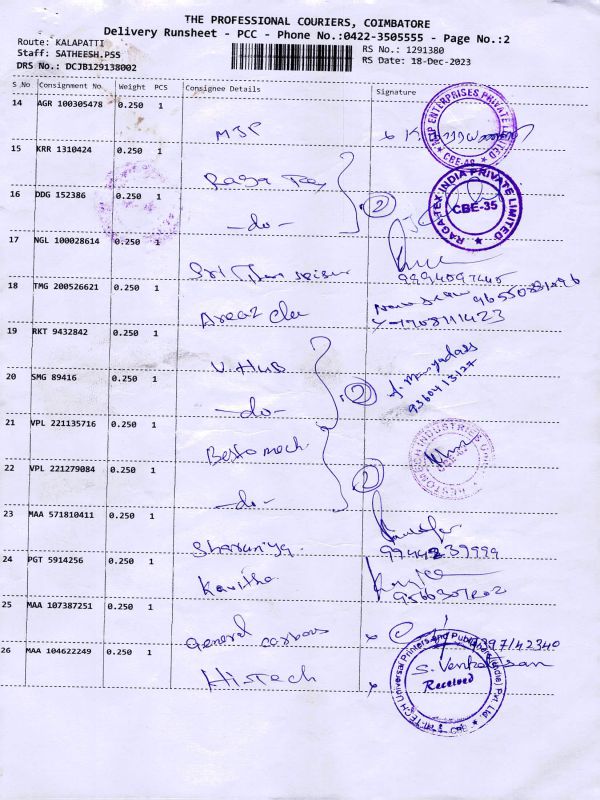 THE PROFESSIONAL COURIERS, COIMBATORE
Delivery Runsheet - PCC - Phone No.:0422-3505555 - Page No.:2
Route: KALAPATTI
RS No.: 1291380
Staff: SATHEESH.PSS
RS Date: 18-Dec-2023
DRS No.: DCJB129138002
S No Consignment No. Weight PCS Consignee Details Signature
14 AGR 100305478 0.250 1
ENTERPRISES PRIVATE LIMITED
CBE-48
15 KRR 1310424 0.250 1
16 DDG 152386 0.250 1 -do- 2
RAGATEX INDIA PRIVATE LIMITED
CBE-35
17 NGL 100028614 0.250 1
18 TMG 200526621 0.250 1
19 RKT 9432842 0.250 1 V. Hus
9360413127
20 SMG 89416 0.250 1 -do- 2
21 VPL 221135716 0.250 1 Bestomech
22 VPL 221279084 0.250 1 -do- 2
23 MAA 571810411 0.250 1 Sharaniya
9744239999
24 PGT 5914256 0.250 1 Kavitha
25 MAA 107387251 0.250 1 General carbons
9397142340
26 MAA 104622249 0.250 1 Histech
HI-TECH Universal Printers and Publishers (India) Pvt. Ltd.
S. Venkatesan
Received